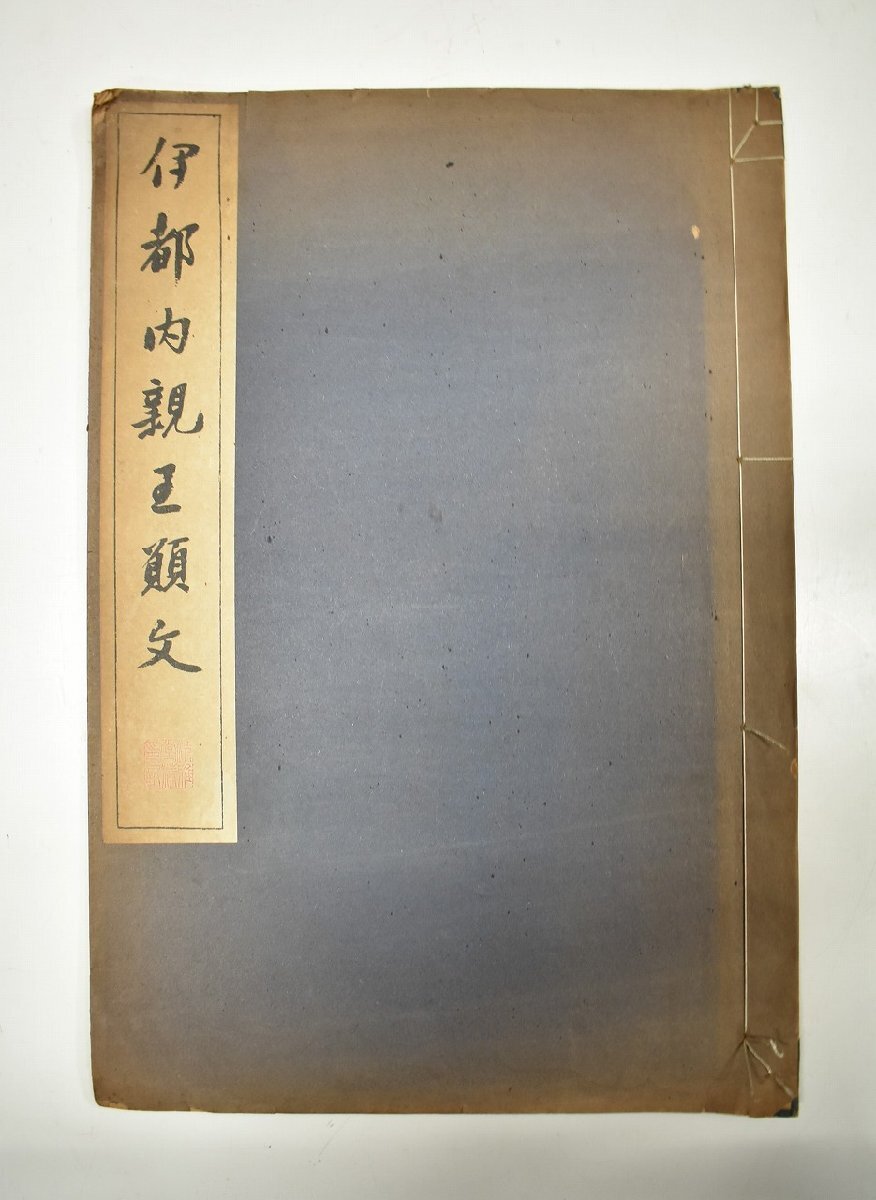 伊都内親王願文